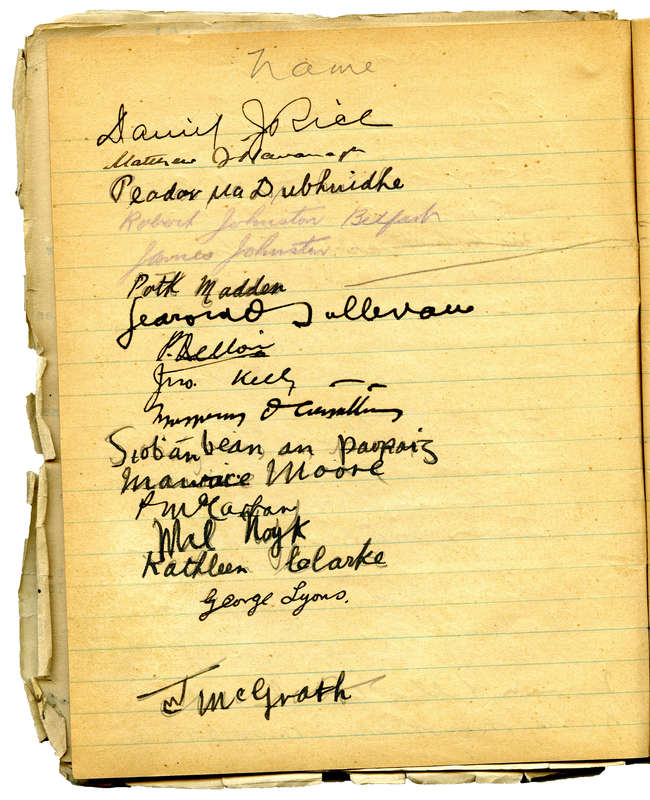 Name
Daniel J Rice
Matthew J Kavanagh
Peadar Ua Dubhuidhe
Robert Johnston Belfast
James Johnston
Patk Madden
Gearoid O Sullevain
P.
Jno. Kelly
O
Siobán bean an paoraig
Maurice Moore
P McCartan
Ml Noyk
Kathleen Clarke
George Lyons.
J McGrath